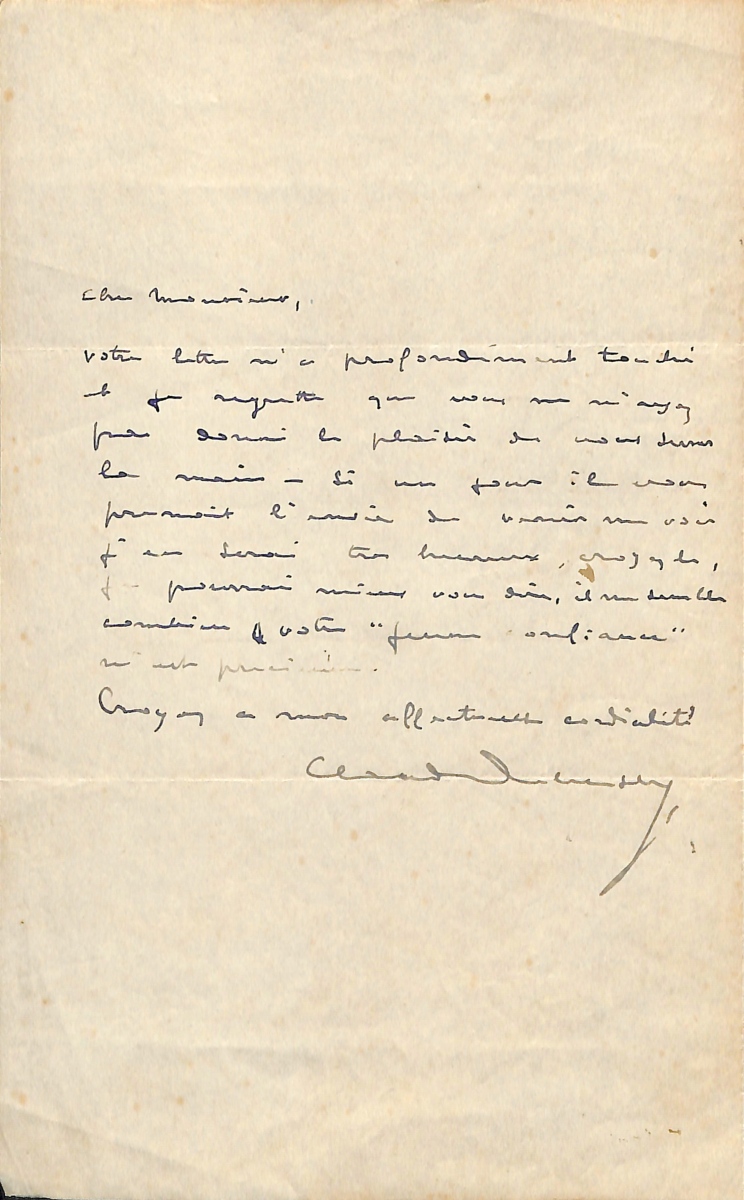 Cher Monsieur,
Votre lettre m'a profondément touché
et je regrette que vous ne m'ayez
pas donné le plaisir de vous serrer
la main — Si un jour il vous
prenait l'envie de venir me voir
j'en serai très heureux, croyez-le,
je pourrai mieux vous dire, il me semble
combien votre "jeune confiance"
m'est précieuse.
Croyez à mon affectueuse cordialité
Claude Debussy